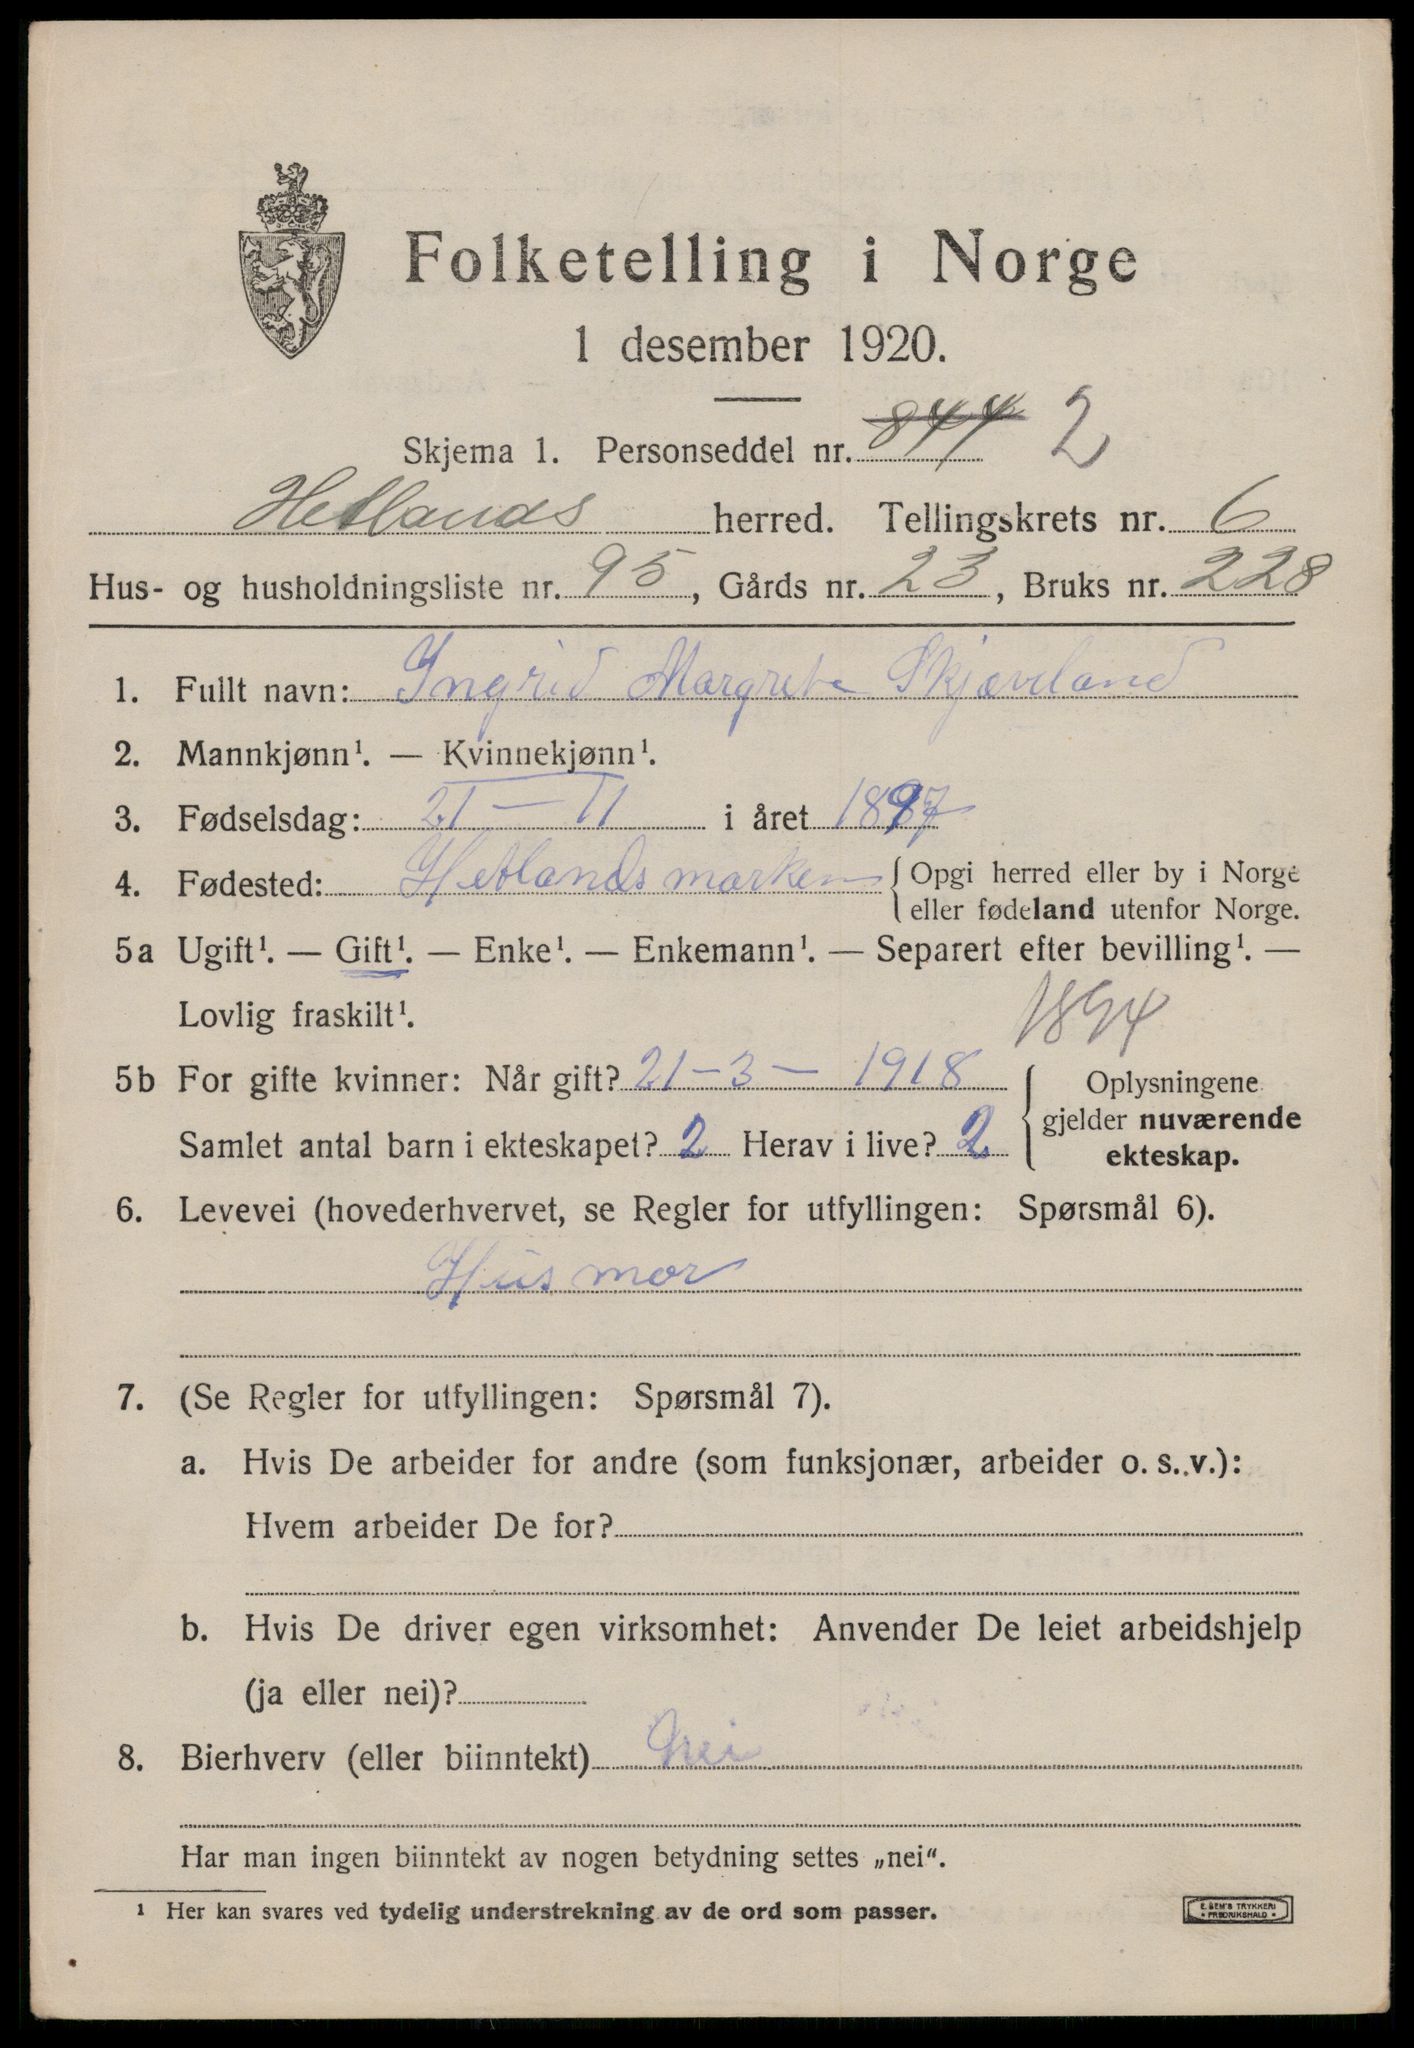 Folketelling i Norge
1 desember 1920.
Skjema 1. Personseddel nr. 844 2
Hetlands herred. Tellingskrets nr. 6
Hus- og husholdningsliste nr. 95, Gårds nr. 23, Bruks nr. 228
1. Fullt navn: Ingrid Margrete Skjæveland
2. Mannkjønn¹. — Kvinnekjønn¹.
3. Fødselsdag: 21 — 11 i året 1897
4. Fødested: Hetlandsmarken { Opgi herred eller by i Norge
eller fødeland utenfor Norge.
5a Ugift¹. — Gift¹. — Enke¹. — Enkemann¹. — Separert efter bevilling¹. —
Lovlig fraskilt¹.
1894
5b For gifte kvinner: Når gift? 21-3-1918 { Oplysningene
gjelder nuværende
ekteskap.
Samlet antal barn i ekteskapet? 2 Herav i live? 2
6. Levevei (hovederhvervet, se Regler for utfyllingen: Spørsmål 6).
Husmor
7. (Se Regler for utfyllingen: Spørsmål 7).
a. Hvis De arbeider for andre (som funksjonær, arbeider o. s. v.):
Hvem arbeider De for?
b. Hvis De driver egen virksomhet: Anvender De leiet arbeidshjelp
(ja eller nei)?
8. Bierhverv (eller biinntekt) Nei
Har man ingen biinntekt av nogen betydning settes „nei“.
¹ Her kan svares ved tydelig understrekning av de ord som passer.
E. SEM'S TRYKKERI
* FREDRIKSHALD *